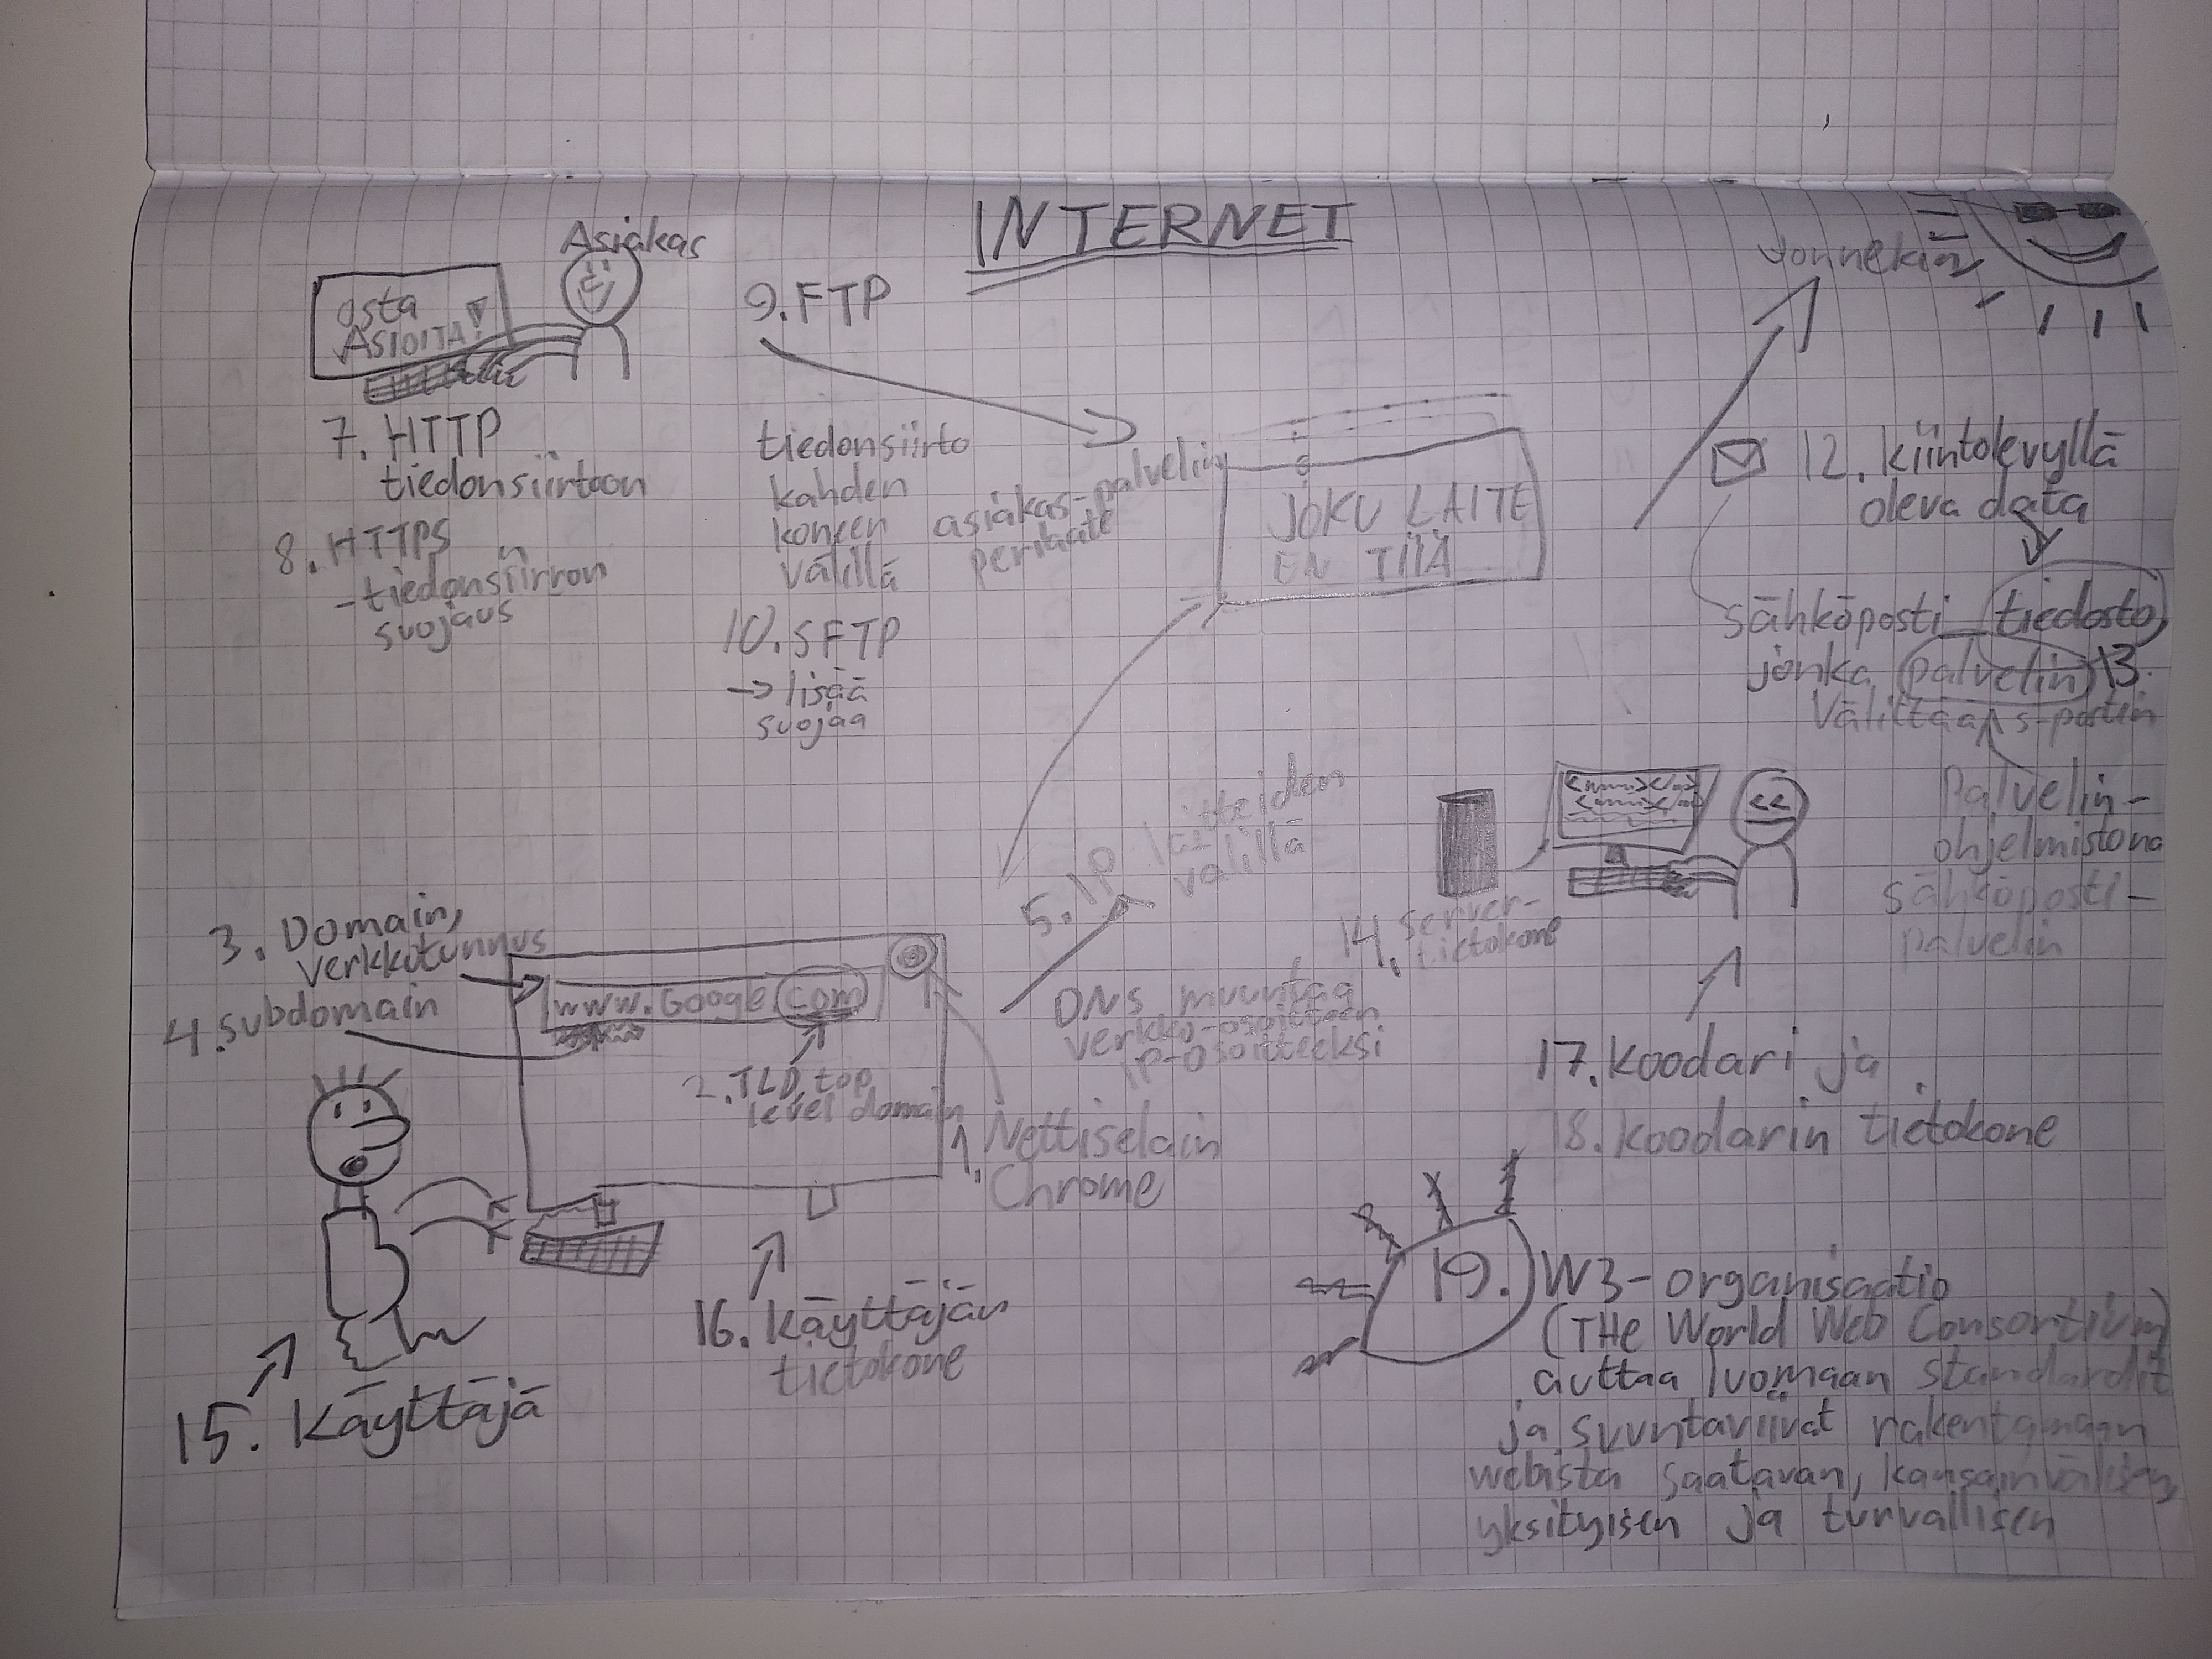 INTERNET
Asiakas
osta
ASIOITA!
7. HTTP
tiedonsiirtoon
8. HTTPS
-tiedonsiirron
suojaus
9. FTP
tiedonsiirto
kahden
koneen
välillä
asiakas-palvelin
periaate
10. SFTP
→ lisää
suojaa
JOKU LAITE
EN TIIÄ
Jonnekin
12. kiintolevyllä
oleva data
sähköposti tiedosto
jonka palvelin 13.
välittää s-postin
Palvelin-
ohjelmistona
sähköposti-
palvelin
14. server-
tietokone
17. koodari ja
18. koodarin tietokone
5. IP laitteiden
välillä
DNS muuntaa
verkko-osoitteen
IP-osoitteeksi
3. Domain,
verkkotunnus
4. subdomain
www.Googe.com
2. TLD, top
level domain
1. Nettiselain
Chrome
15. Käyttäjä
16. Käyttäjän
tietokone
19. W3-organisaatio
(THe World Web Consortium)
auttaa luomaan standardit
ja suuntaviivat rakentamaan
webistä saatavan, kansainvälisen,
yksityisen ja turvallisen